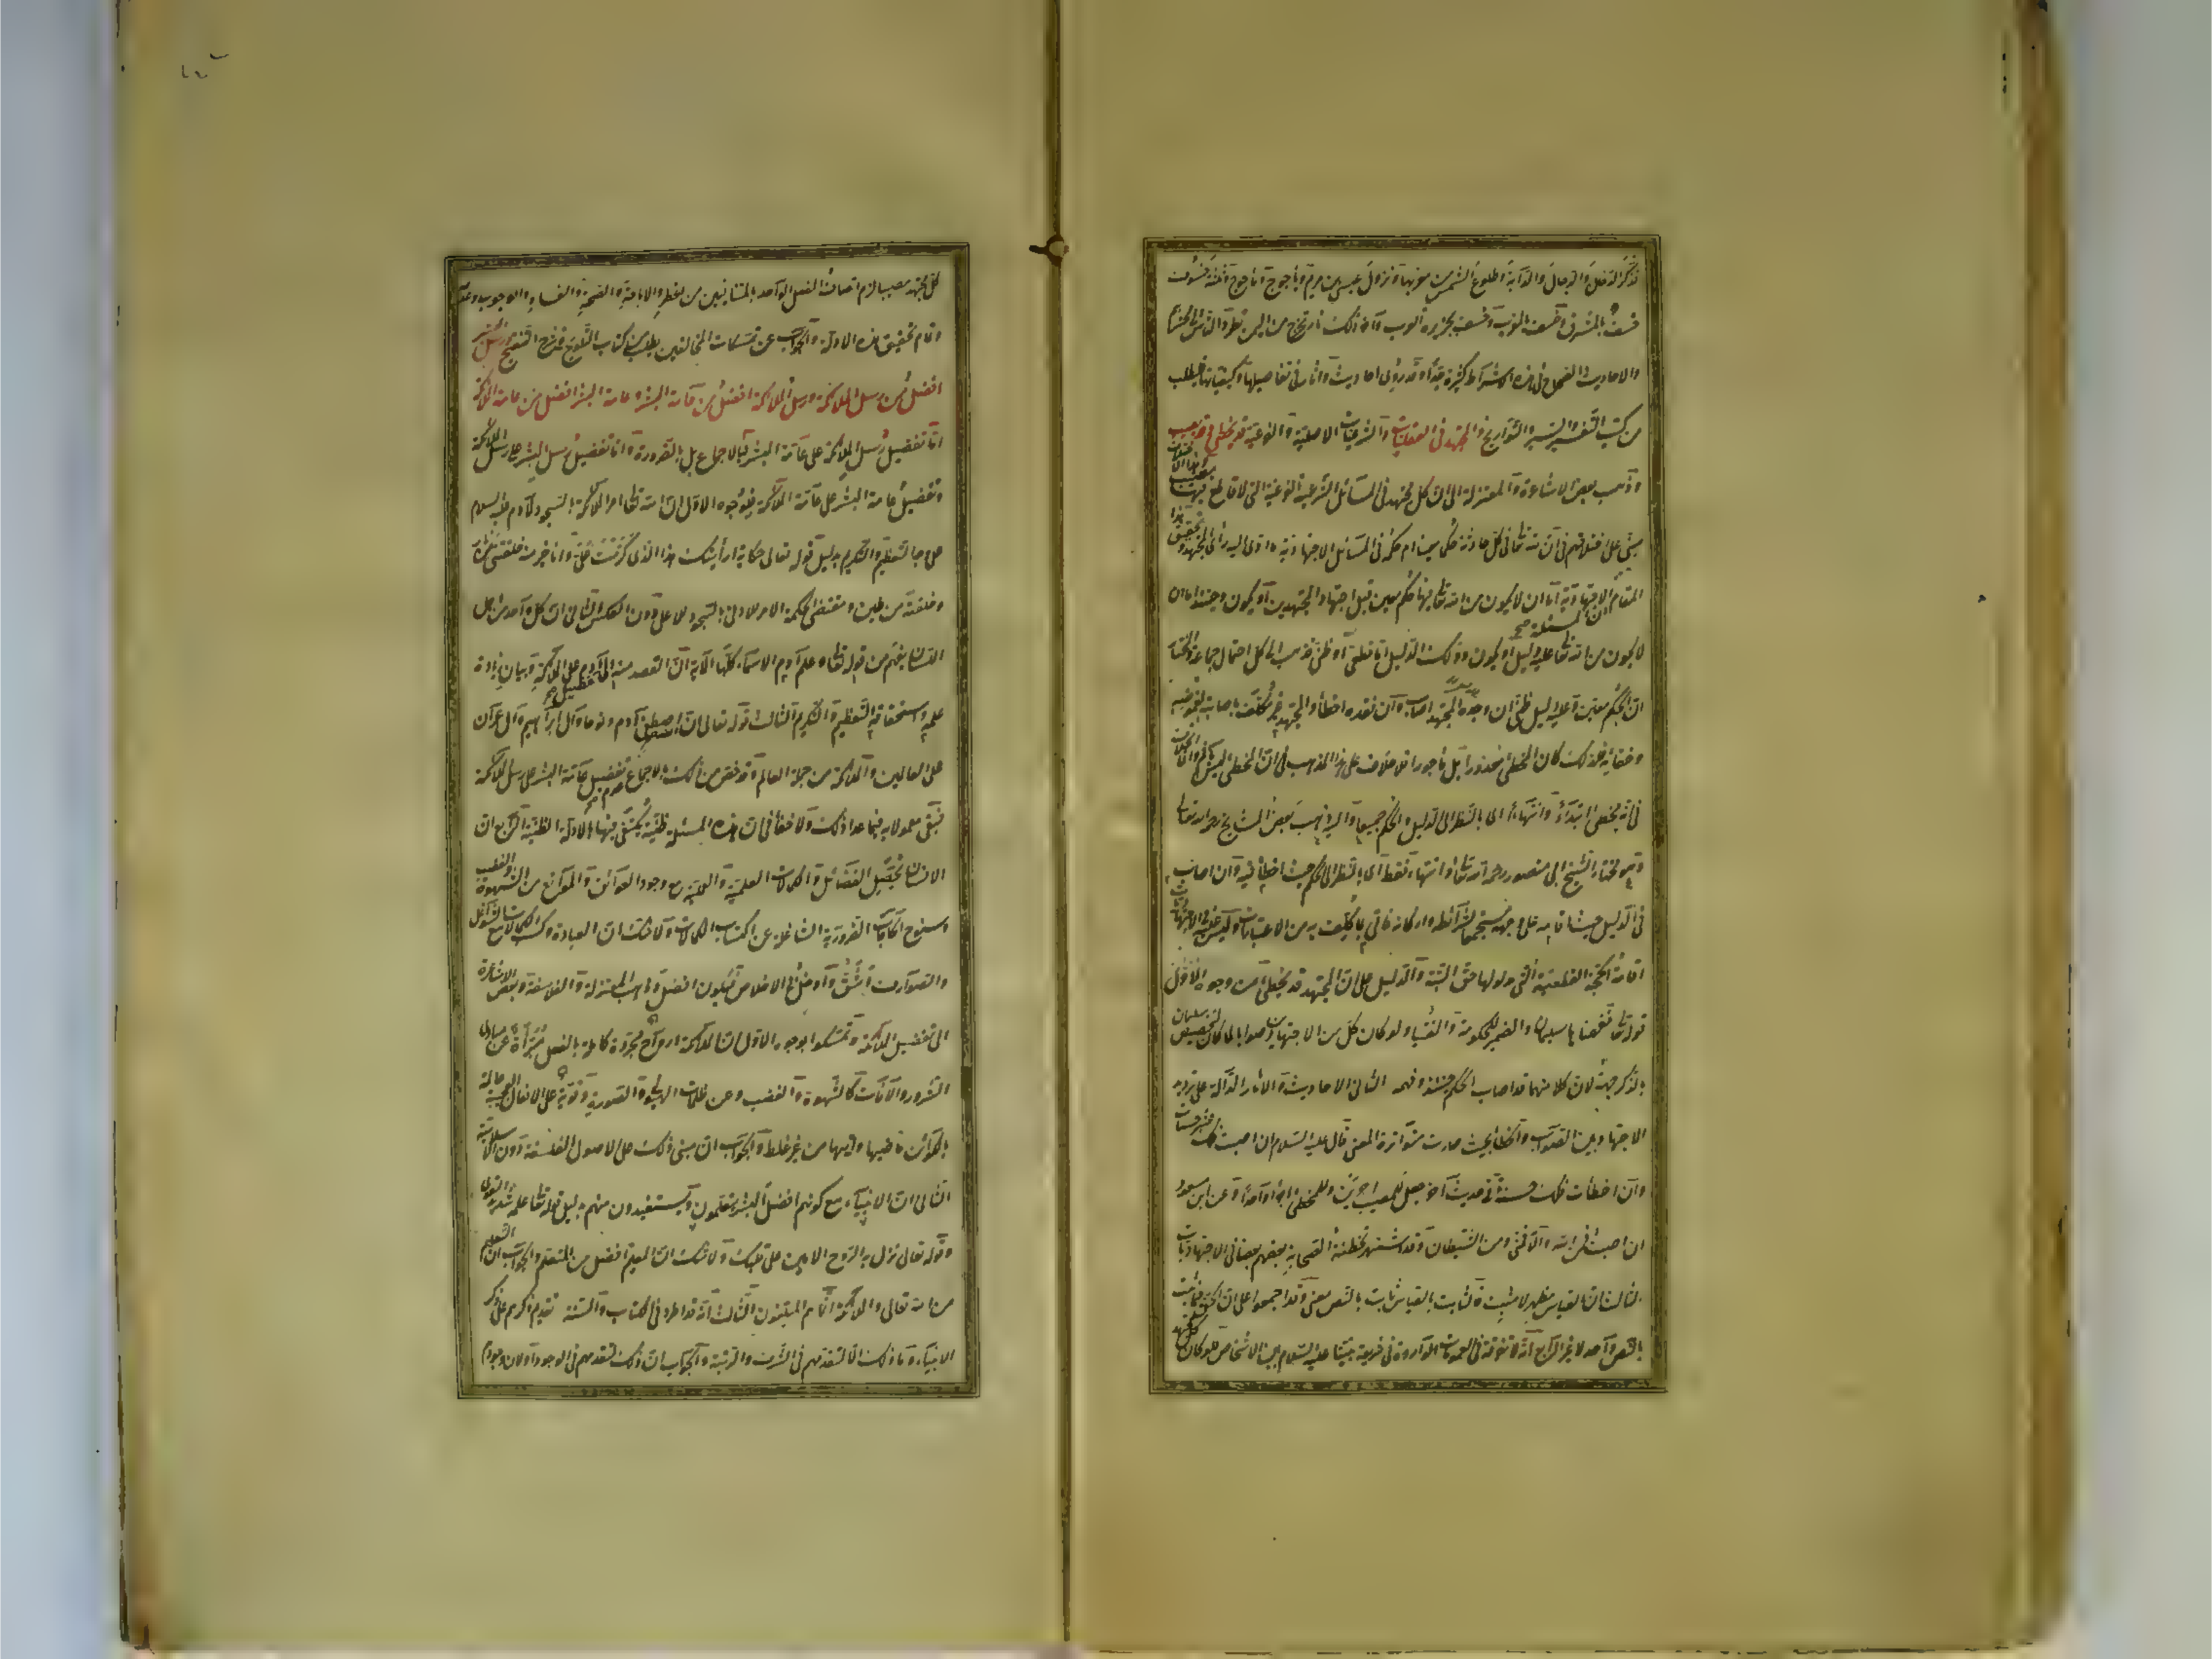 فذكر الدخان والدجال والدابة وطلوع الشمس من مغربها ونزول عيسى بن مريم ويأجوج ومأجوج وثلثة خسوف
خسف بالمشرق وخسف بالمغرب وخسف بجزيرة العرب وآخر ذلك نار تخرج من اليمن تطرد الناس الى محشرهم
والاحاديث الصحاح فى هذه الاشراط كثيرة جدا وقد روى احاديث وآثار فى تفاصيلها وكيفياتها فليطلب
من كتب التفسير والسير والتواريخ والمجتهد فى العقليات والشرعيات الاصلية والفرعية قد يخطئ وقد يصيب
وذهب بعض الاشاعرة والمعتزلة الى ان كل مجتهد فى المسائل الشرعية الفرعية التى لا قاطع فيها مصيب وهذا الاختلاف
مبنى على اختلافهم فى ان لله تعالى فى كل حادثة حكما معينا ام حكمه فى المسائل الاجتهادية ما ادى اليه رأى المجتهد وتحقيق هذا
المقام ان المسئلة الاجتهادية اما ان لا يكون من الله تعالى فيها حكم معين قبل اجتهاد المجتهدين او يكون وحينئذ اما ان
لا يكون من الله تعالى عليه دليل او يكون وذلك الدليل اما قطعى او ظنى فذهب الى كل احتمال جماعة والمختار
ان الحكم معين وعليه دليل ظنى ان وجده المجتهد اصاب وان فقده اخطأ والمجتهد غير مكلف باصابته لغموضه
وخفائه فلذلك كان المخطئ معذورا بل مأجورا فلا خلاف على هذا المذهب فى ان المخطئ ليس بآثم وانما الخلاف
فى انه مخطئ ابتداء وانتهاء اى بالنظر الى الدليل والحكم جميعا واليه ذهب بعض المشايخ رحمه الله تعالى
وهو مختار الشيخ ابى منصور رحمه الله تعالى او انتهاء فقط اى بالنظر الى الحكم حيث اخطأ فيه وان اصاب
فى الدليل حيث اقامه على وجهه مستجمعا لشرائطه واركانه فاتى بما كلف به من الاعتبارات وليس عليه فى الاجتهاديات
اقامة الحجة القطعية التى مدلولها حق البتة والدليل على ان المجتهد قد يخطئ من وجوه الاول
قوله تعالى ففهمناها سليمان والضمير للحكومة والفتيا ولو كان كل من الاجتهادين صوابا لما كان لتخصيص سليمان
بالذكر جهة لان كلا منهما قد اصاب الحكم حينئذ وفهمه الثانى الاحاديث والآثار الدالة على ترديد
الاجتهاد بين الصواب والخطأ بحيث صارت متواترة المعنى قال عليه السلام ان اصبت فلك عشر حسنات
وان اخطأت فلك حسنة وفى حديث آخر جعل للمصيب اجرين وللمخطئ اجرا واحدا وعن ابن مسعود
ان اصبت فمن الله والا فمنى ومن الشيطان وقد اشتهر تخطئة الصحابة بعضهم بعضا فى الاجتهاديات
الثالث ان القياس مظهر لا مثبت فالثابت بالقياس ثابت بالنص معنى وقد اجمعوا على ان الحق فيما ثبت
بالنص واحد لا غير الرابع انه لا تفرقة فى العمومات الواردة فى شريعة نبينا عليه السلام بين الاشخاص فلو كان كل مجتهد
كل مجتهد مصيبا لزم اتصاف الفعل الواحد بالمتنافيين من الحظر والاباحة والصحة والفساد والوجوب وعدمه
وتمام تحقيق هذه الادلة والجواب عن تمسكات المخالفين يطلب من كتاب التلويح فى شرح التنقيح ورسل البشر
افضل من رسل الملائكة ورسل الملائكة افضل من عامة البشر وعامة البشر افضل من عامة الملائكة
اما تفضيل رسل الملائكة على عامة البشر فبالاجماع بل بالضرورة واما تفضيل رسل البشر على رسل الملائكة
وتفضيل عامة البشر على عامة الملائكة فلوجوه الاول ان الله تعالى امر الملائكة بالسجود لآدم عليه السلام
على وجه التعظيم والتكريم بدليل قوله تعالى حكاية ارأيتك هذا الذى كرمت على وانا خير منه خلقتنى من نار
وخلقته من طين ومقتضى الحكمة الامر للادنى بالسجود للاعلى دون العكس الثانى ان كل واحد من اهل
اللسان يفهم من قوله تعالى وعلم آدم الاسماء كلها الآية ان القصد منه الى تفضيل آدم على الملائكة وبيان زيادة
علمه واستحقاقه التعظيم والتكريم الثالث قوله تعالى ان الله اصطفى آدم ونوحا وآل ابراهيم وآل عمران
على العالمين والملائكة من جملة العالم وقد خص من ذلك بالاجماع عدم تفضيل عامة البشر على رسل الملائكة
فبقى معمولا به فيما عدا ذلك ولا خفاء فى ان هذه المسئلة ظنية يكتفى فيها بالادلة الظنية الرابع ان
الانسان يحصل الفضائل والكمالات العلمية والعملية مع وجود العوائق والموانع من الشهوة والغضب
وسنوح الحاجات الضرورية الشاغلة عن اكتساب الكمالات ولا شك ان العبادة وكسب الكمالات مع الشواغل
والصوارف اشق وادخل فى الاخلاص فيكون افضل وذهب المعتزلة والفلاسفة وبعض الاشاعرة
الى تفضيل الملائكة وتمسكوا بوجوه الاول ان الملائكة ارواح مجردة كاملة بالفعل مبرأة عن مبادى
الشرور والآفات كالشهوة والغضب وعن ظلمات الهيولى والصورة قوية على الافعال العجيبة عالمة
بالكوائن ماضيها وآتيها من غير غلط والجواب ان مبنى ذلك على الاصول الفلسفية دون الاسلامية
الثانى ان الانبياء مع كونهم افضل البشر يتعلمون ويستفيدون منهم بدليل قوله تعالى علمه شديد القوى
وقوله تعالى نزل به الروح الامين على قلبك ولا شك ان المعلم افضل من المتعلم والجواب ان التعليم
من الله تعالى والملائكة انما هم المبلغون الثالث انه قد اطرد فى الكتاب والسنة تقديم ذكرهم على ذكر
الانبياء وما ذلك الا لتقدمهم فى الشرف والرتبة والجواب ان ذلك لتقدمهم فى الوجود او لان وجودهم